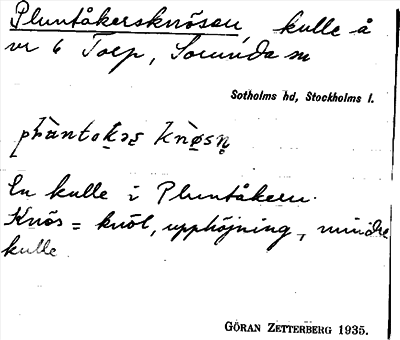 Pluntåkersknösen, kulle å
vr 6 Torp, Sorunda sn
Sotholms hd, Stockholms l.
En kulle i Pluntåkern.
Knös = knöl, upphöjning, mindre
kulle.
GÖRAN ZETTERBERG 1935.